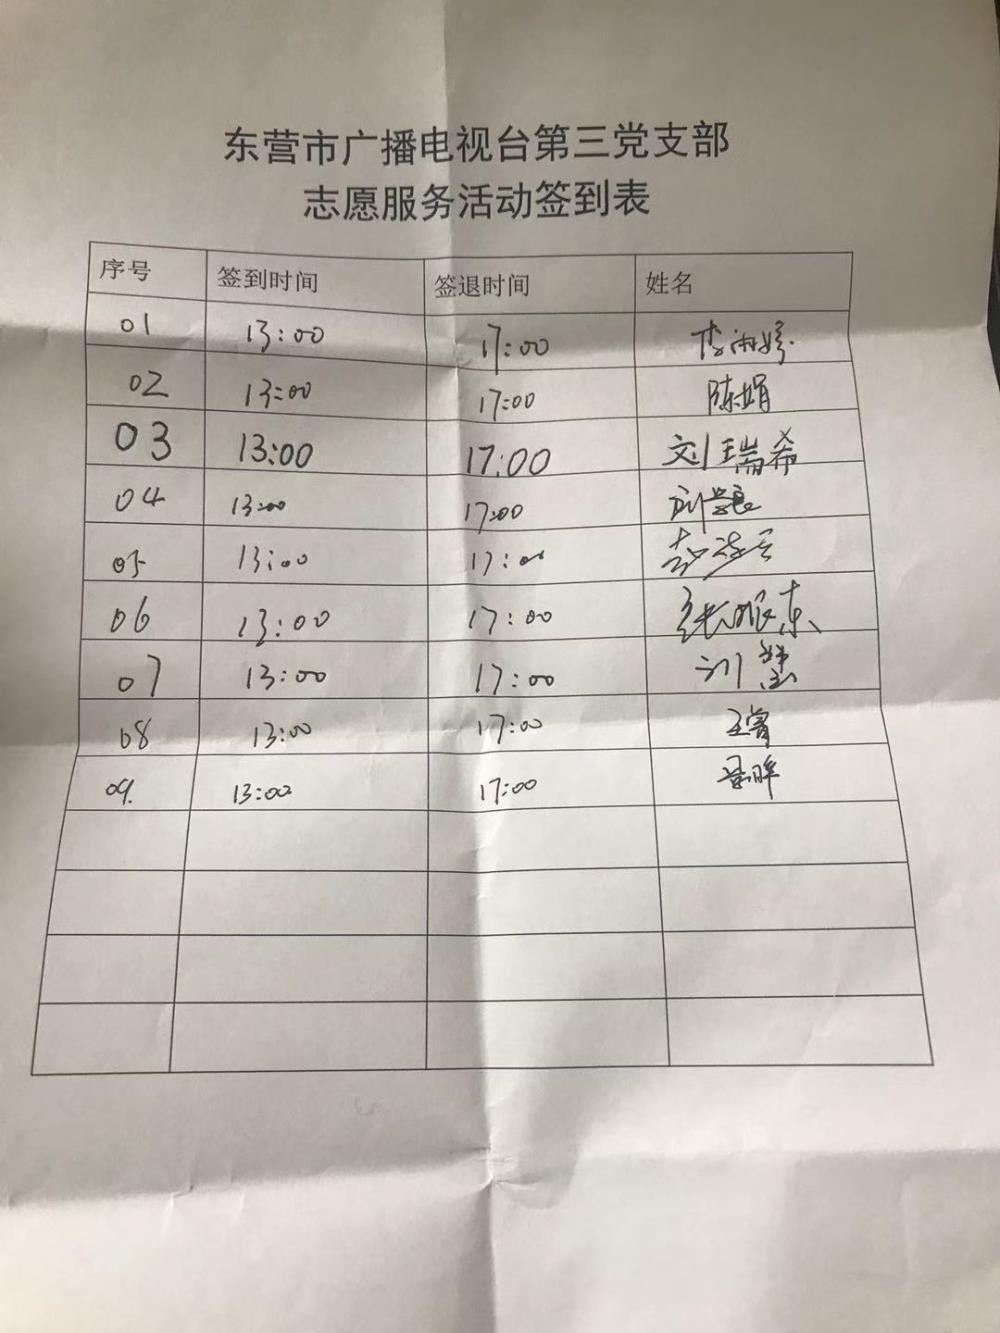 东营市广播电视台第三党支部
志愿服务活动签到表
序号 签到时间 签退时间 姓名
01 13:00 17:00
02 13:00 17:00 陈娟
03 13:00 17:00 刘瑞希
04 13:00 17:00
05 13:00 17:00
06 13:00 17:00
07 13:00 17:00 刘慧
08 13:00 17:00
09. 13:00 17:00